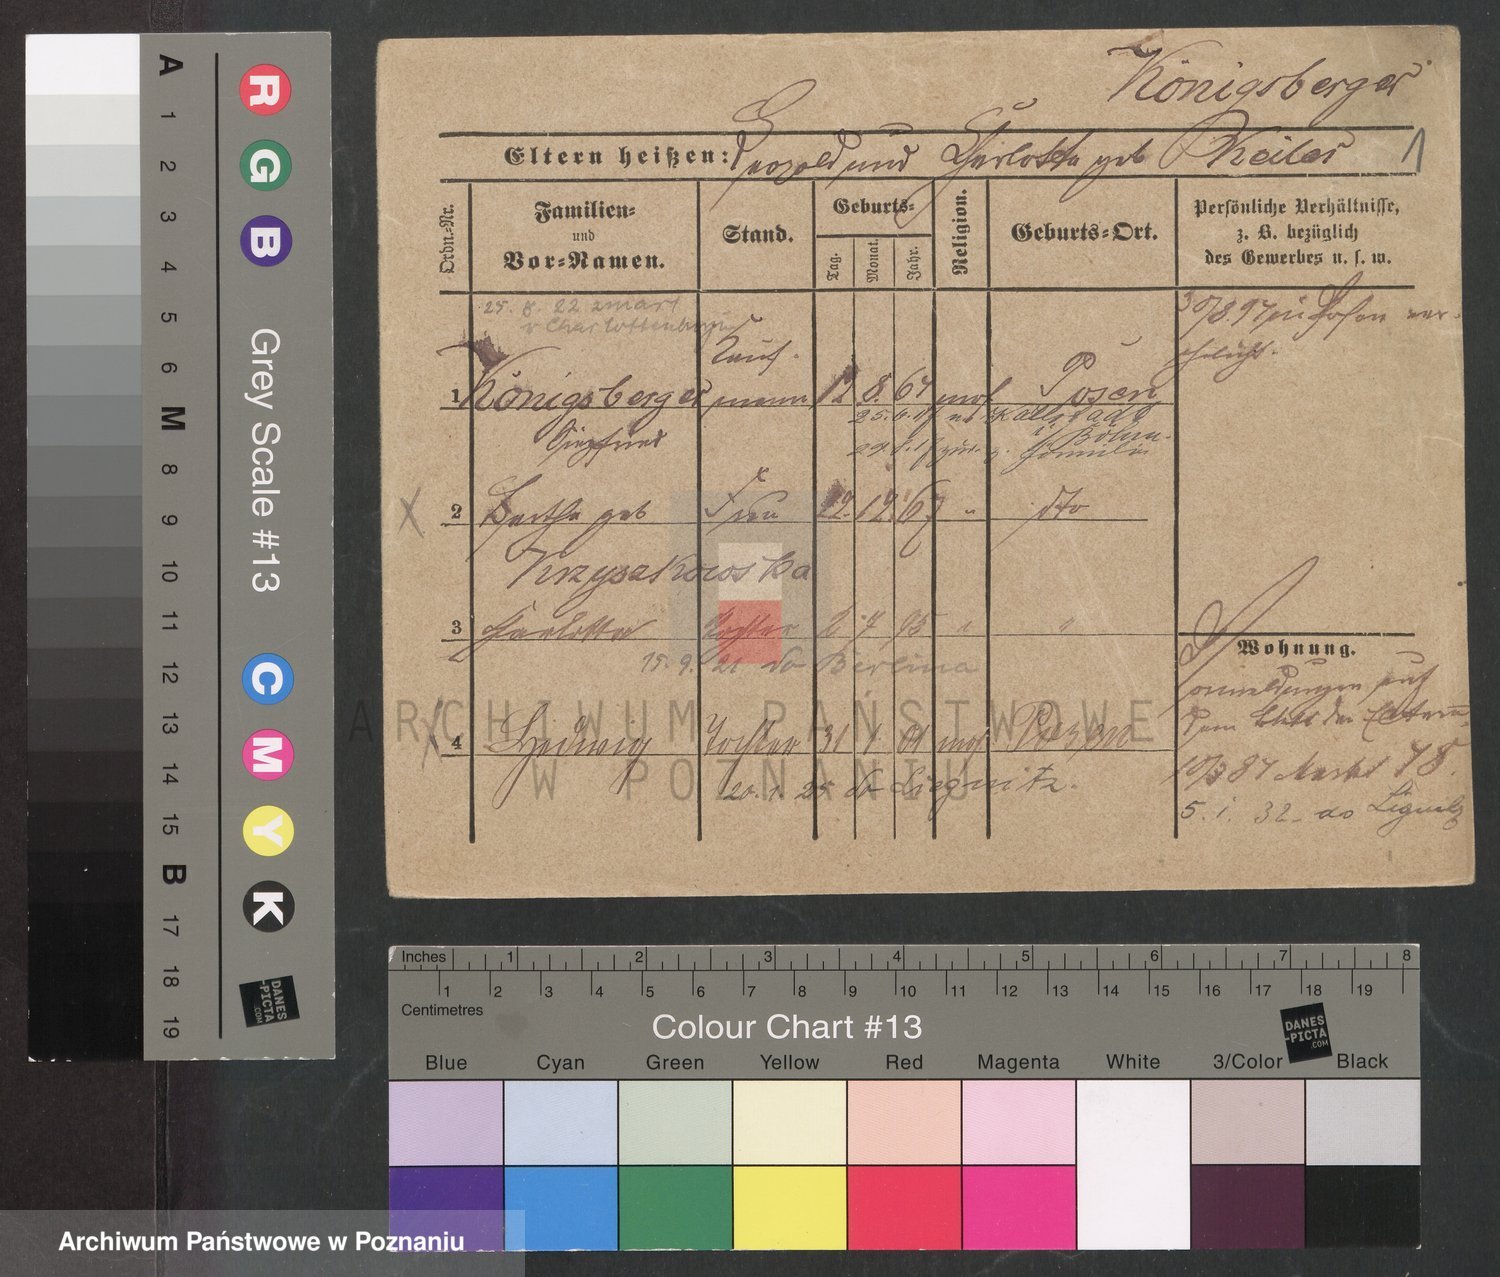 Königsberger
Eltern heißen: Leopold und Charlotte geb Keiler
1
Ordn.-Nr.
Familien-
und
Vor-Namen.
Stand.
Geburts-
Tag.
Monat.
Jahr.
Religion.
Geburts-Ort.
Persönliche Verhältnisse,
z. B. bezüglich
des Gewerbes u. s. w.
25. 8. 22 zmarł
w Charlottenburgu
30/8.97 in Posen ver-
ehelicht.
Kauf-
1 Königsberger mann 12 8. 67 mos Posen
Siegfried
i/Böhm.
Familie
2 Bertha geb Frau 12. 67 " dto
Krzyzakowska
3 Charlotte Tochter 2 7 98 " "
15. 9. 21 do Berlina
Wohnung.
Anmeldungen auf
dem Blatt der Eltern
10/3 87 Markt 78.
5. 1. 32 do Lignitz
4 Hedwig Tochter 31 1 01 mos Posen
20. 1. 25 do Liegnitz.
ARCHIWUM PAŃSTWOWE
W POZNANIU
A 1 2 3 4 5 6 M 8 9 10 11 12 13 14 15 B 17 18 19
R G B
Grey Scale #13
C M Y K
DANES
-PICTA
.COM
Inches 1 2 3 4 5 6 7 8
1 2 3 4 5 6 7 8 9 10 11 12 13 14 15 16 17 18 19
Centimetres
Colour Chart #13
DANES
-PICTA
.COM
Blue Cyan Green Yellow Red Magenta White 3/Color Black
Archiwum Państwowe w Poznaniu